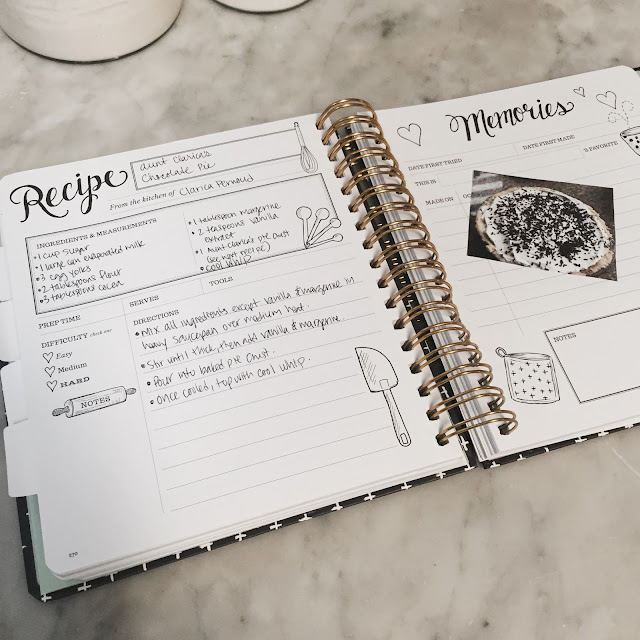 Recipe
aunt Clarica's
Chocolate Pie
From the kitchen of Clarica
INGREDIENTS & MEASUREMENTS
• 1 cup sugar
• 1 large can evaporated milk
• 3 egg yolks
• 2 tablespoons flour
• 3 tablespoons cocoa
• 1 tablespoon margerine
• 2 teaspoons vanilla
extract
• 1 Aunt Clarica's pie crust
(see next recipe)
• cool whip
PREP TIME
SERVES
TOOLS
DIFFICULTY check one
Easy
Medium
HARD
NOTES
DIRECTIONS
• Mix all ingredients except vanilla & margerine in
heavy saucepan over medium heat.
• Stir until thick, then add vanilla & margerine.
• Pour into baked pie crust.
• Once cooled, top with cool whip.
Memories
DATE FIRST TRIED
DATE FIRST MADE
THIS IS
'S FAVORITE
MADE ON
NOTES